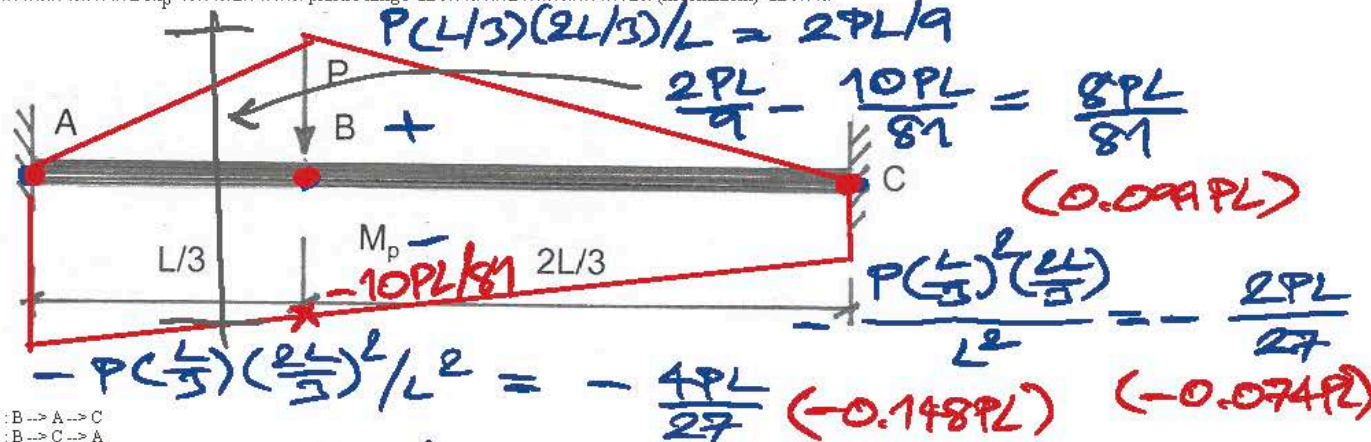 P(L/3)(2L/3)/L = 2PL/9
P
2PL/9 - 10PL/81 = 8PL/81
A
B
+
C
(0.099PL)
Mp -
L/3
2L/3
-10PL/81
- P(L/3)²(2L/3)/L² = - 2PL/27
- P(L/3)(2L/3)²/L² = - 4PL/27
(-0.148PL)
(-0.074PL)
: B --> A --> C
: B --> C --> A